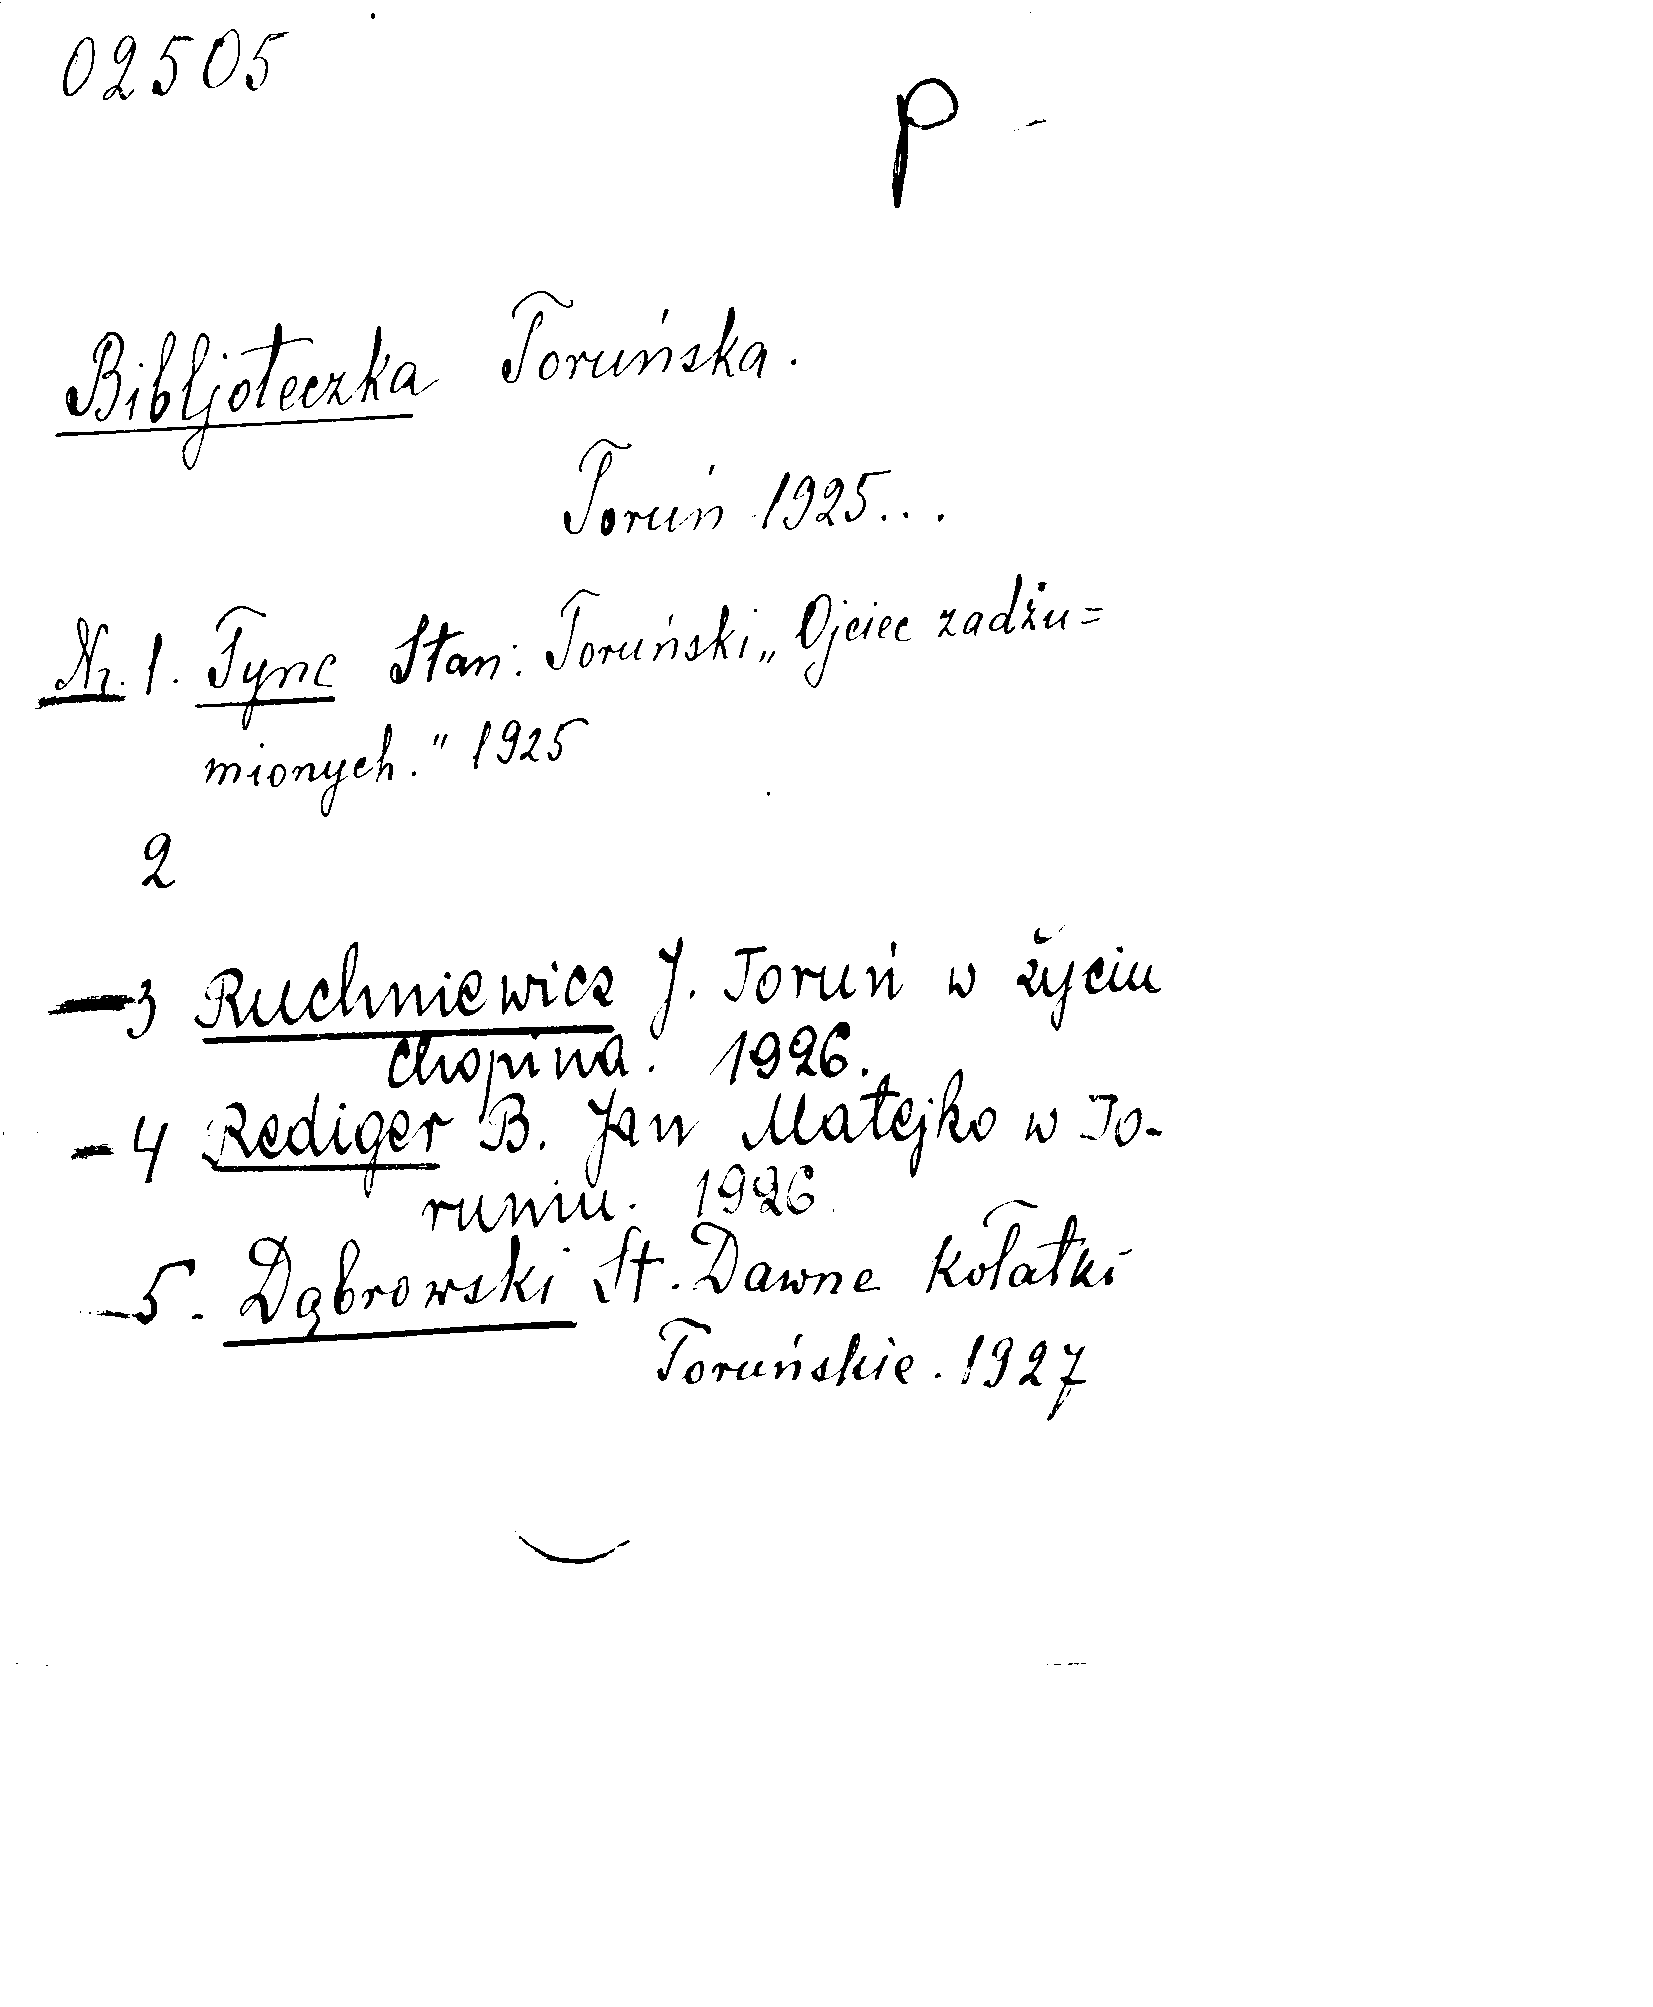 02505
P
Bibljoteczka Toruńska.
Toruń 1925...
Nr. 1. Tync Stan: Toruński „Ojciec zadżu=
mionych." 1925
2
— 3 Ruchniewicz J. Toruń w życiu
Chopina. 1926.
— 4 Rediger B. Jan Matejko w To-
runiu. 1926
— 5. Dąbrowski St. Dawne Kołatki
Toruńskie. 1927